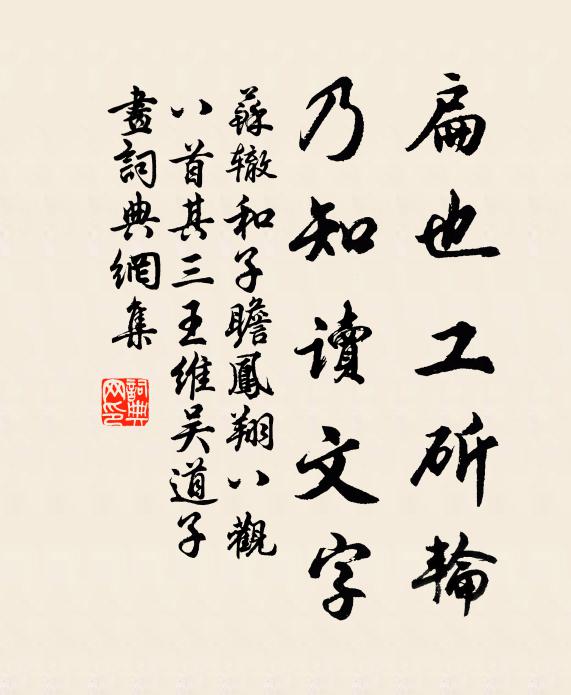 扁也工斫輪
乃知讀文字
蘇辙和子瞻鳳翔八觀
八首其三王維吴道子
畫詞典網集
詞典网印